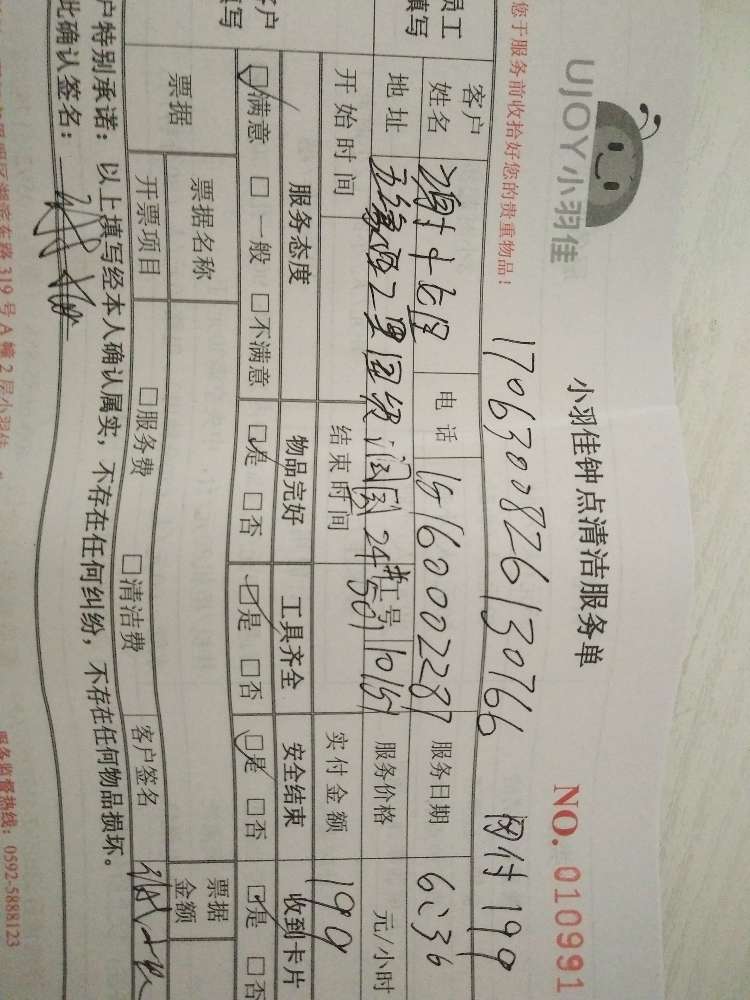 UJOY小羽佳
小羽佳钟点清洁服务单
NO. 010991
您于服务前收拾好您的贵重物品！
1706300826130766 网付199
员工
填写
客户
姓名
电话 15160002287
服务日期 6.30
地址
24#
501
工号 10151
服务价格 元/小时
开始时间
结束时间
实付金额 199
客户
填写
服务态度 物品完好 工具齐全 安全结束 收到卡片
☑满意 □一般 □不满意 ☑是 □否 ☑是 □否 ☑是 □否 ☑是 □否
票据
票据名称
票据
金额
开票项目 □服务费 □清洁费 客户签名
户特别承诺：以上填写经本人确认属实，不存在任何纠纷，不存在任何物品损坏。
此确认签名：
湖滨东路319号A幢2层小羽佳
服务监督热线：0592-5888123